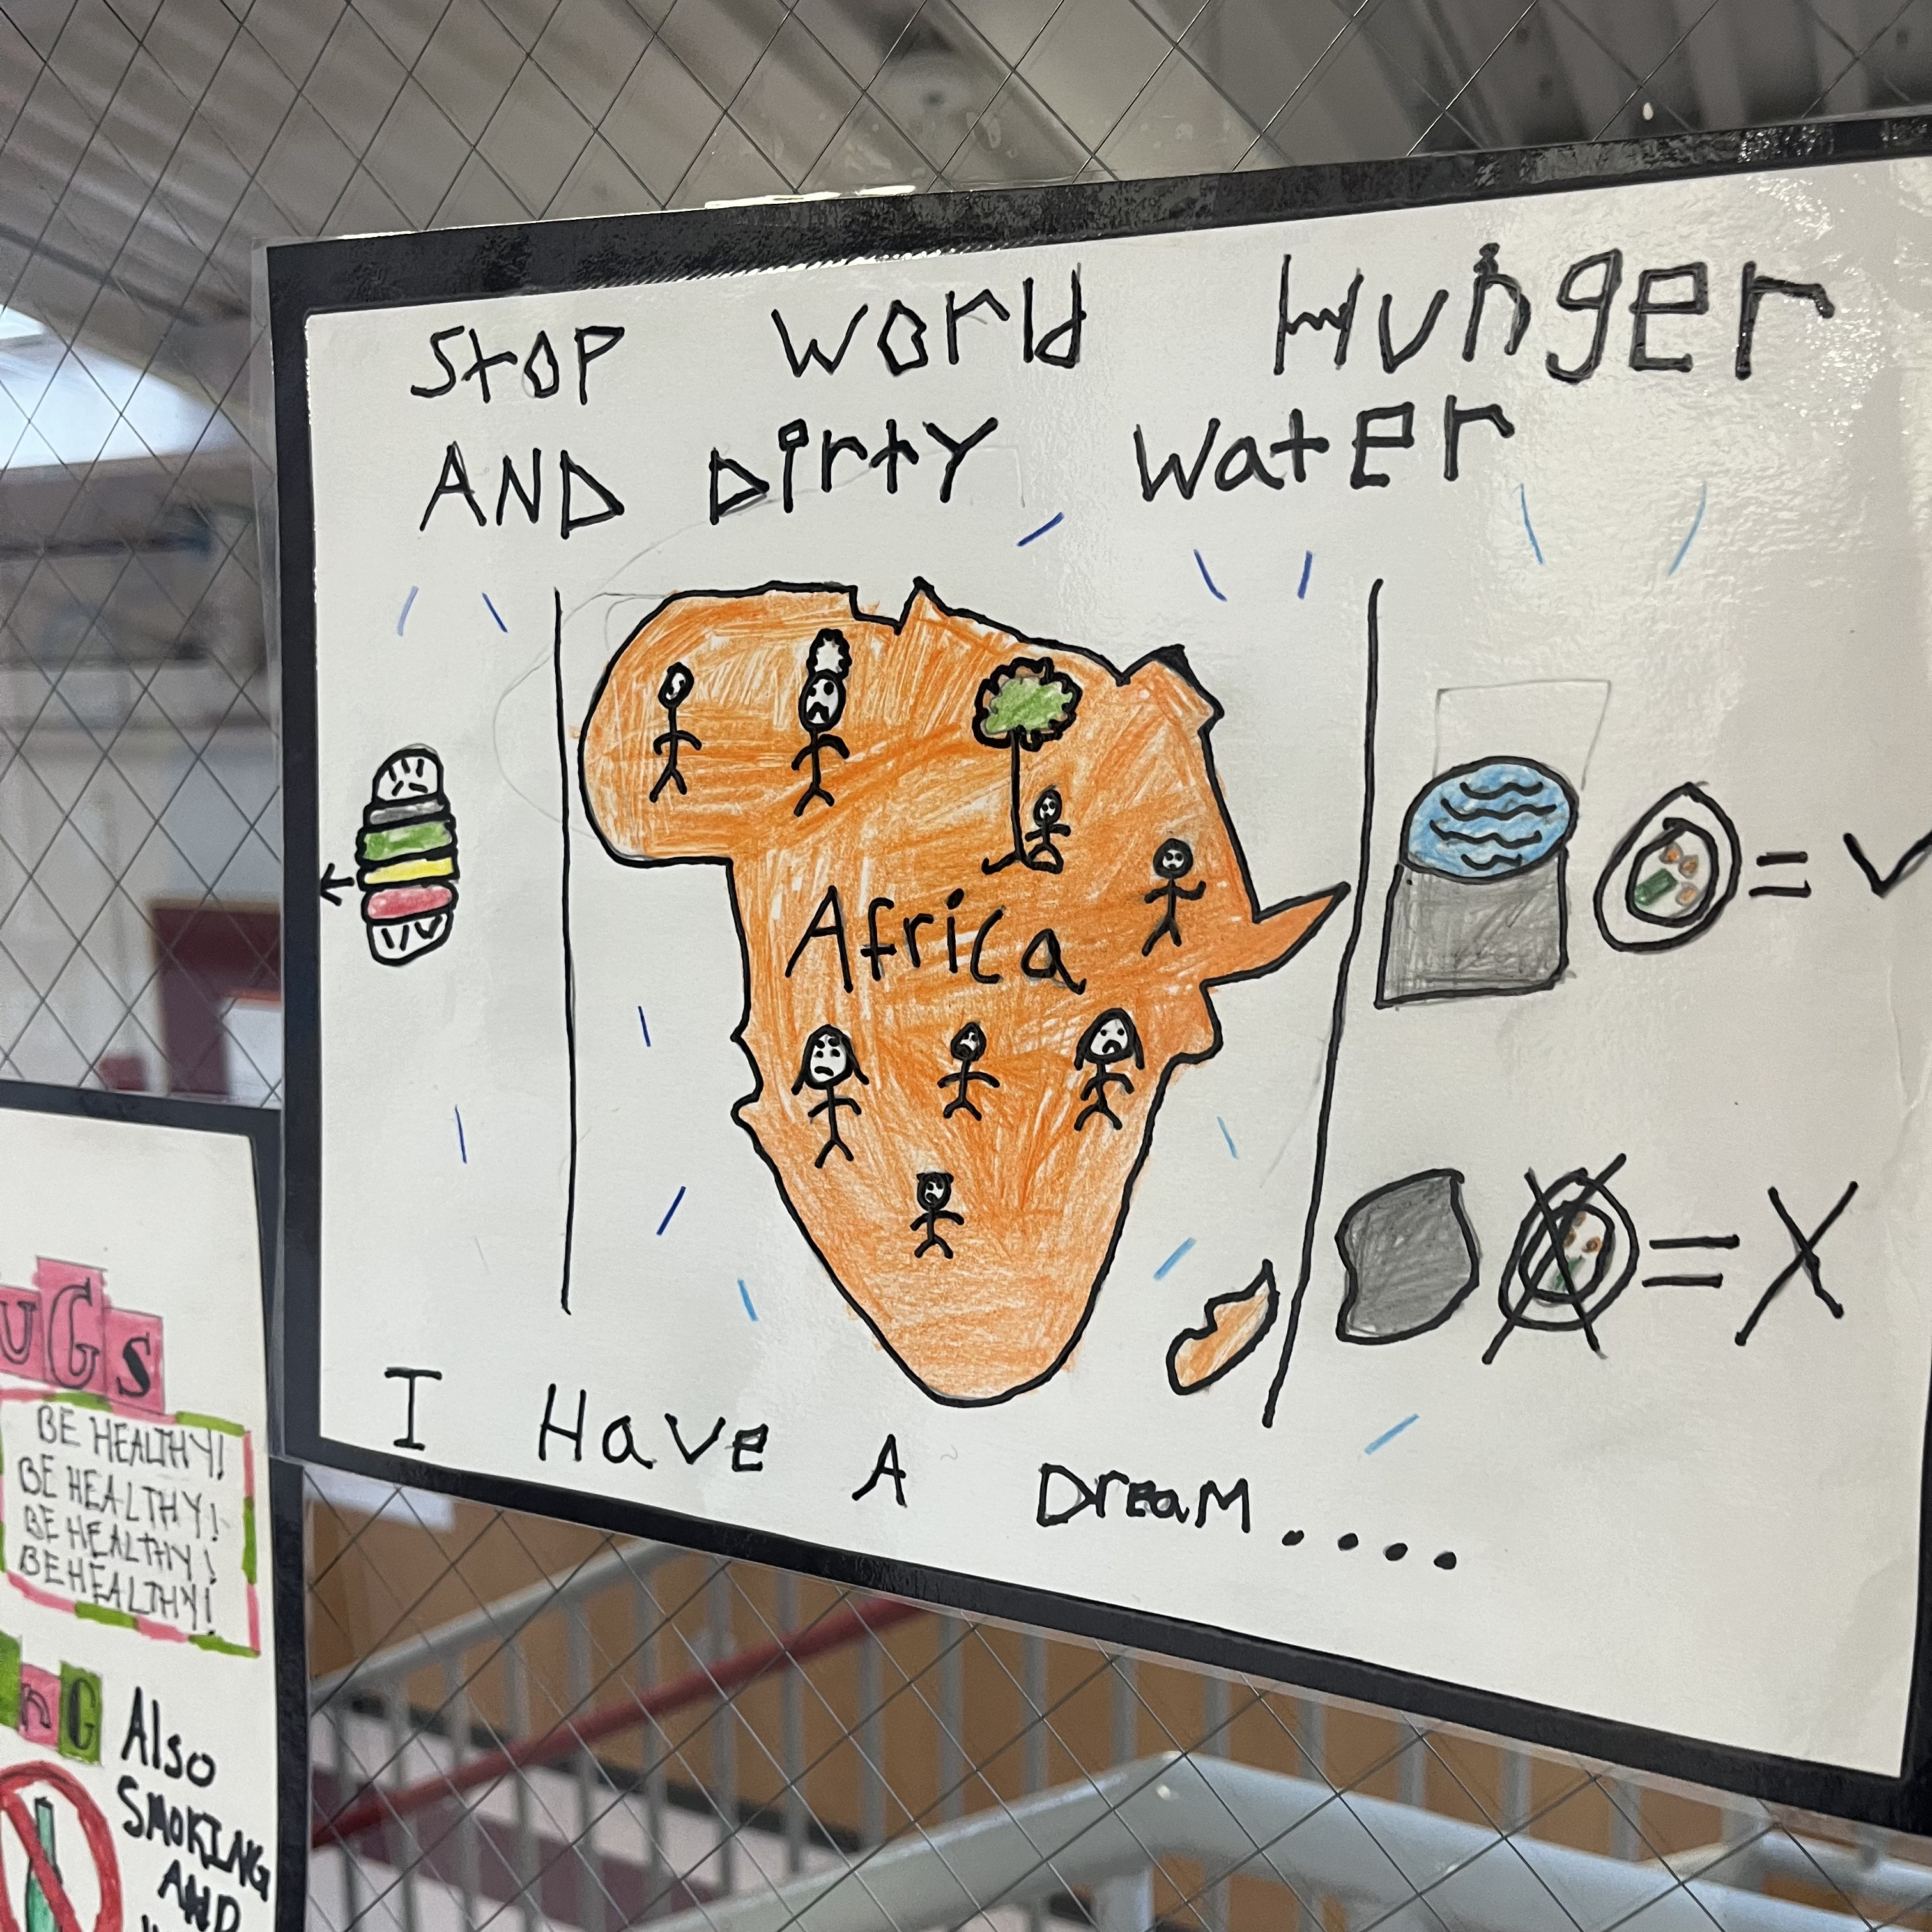 Stop World Hunger
AND Dirty Water
Africa
I Have A Dream....
UGs
BE HEALTHY!
BE HEALTHY!
BE HEALTHY!
BE HEALTHY!
nG
Also
SMOKING
AND